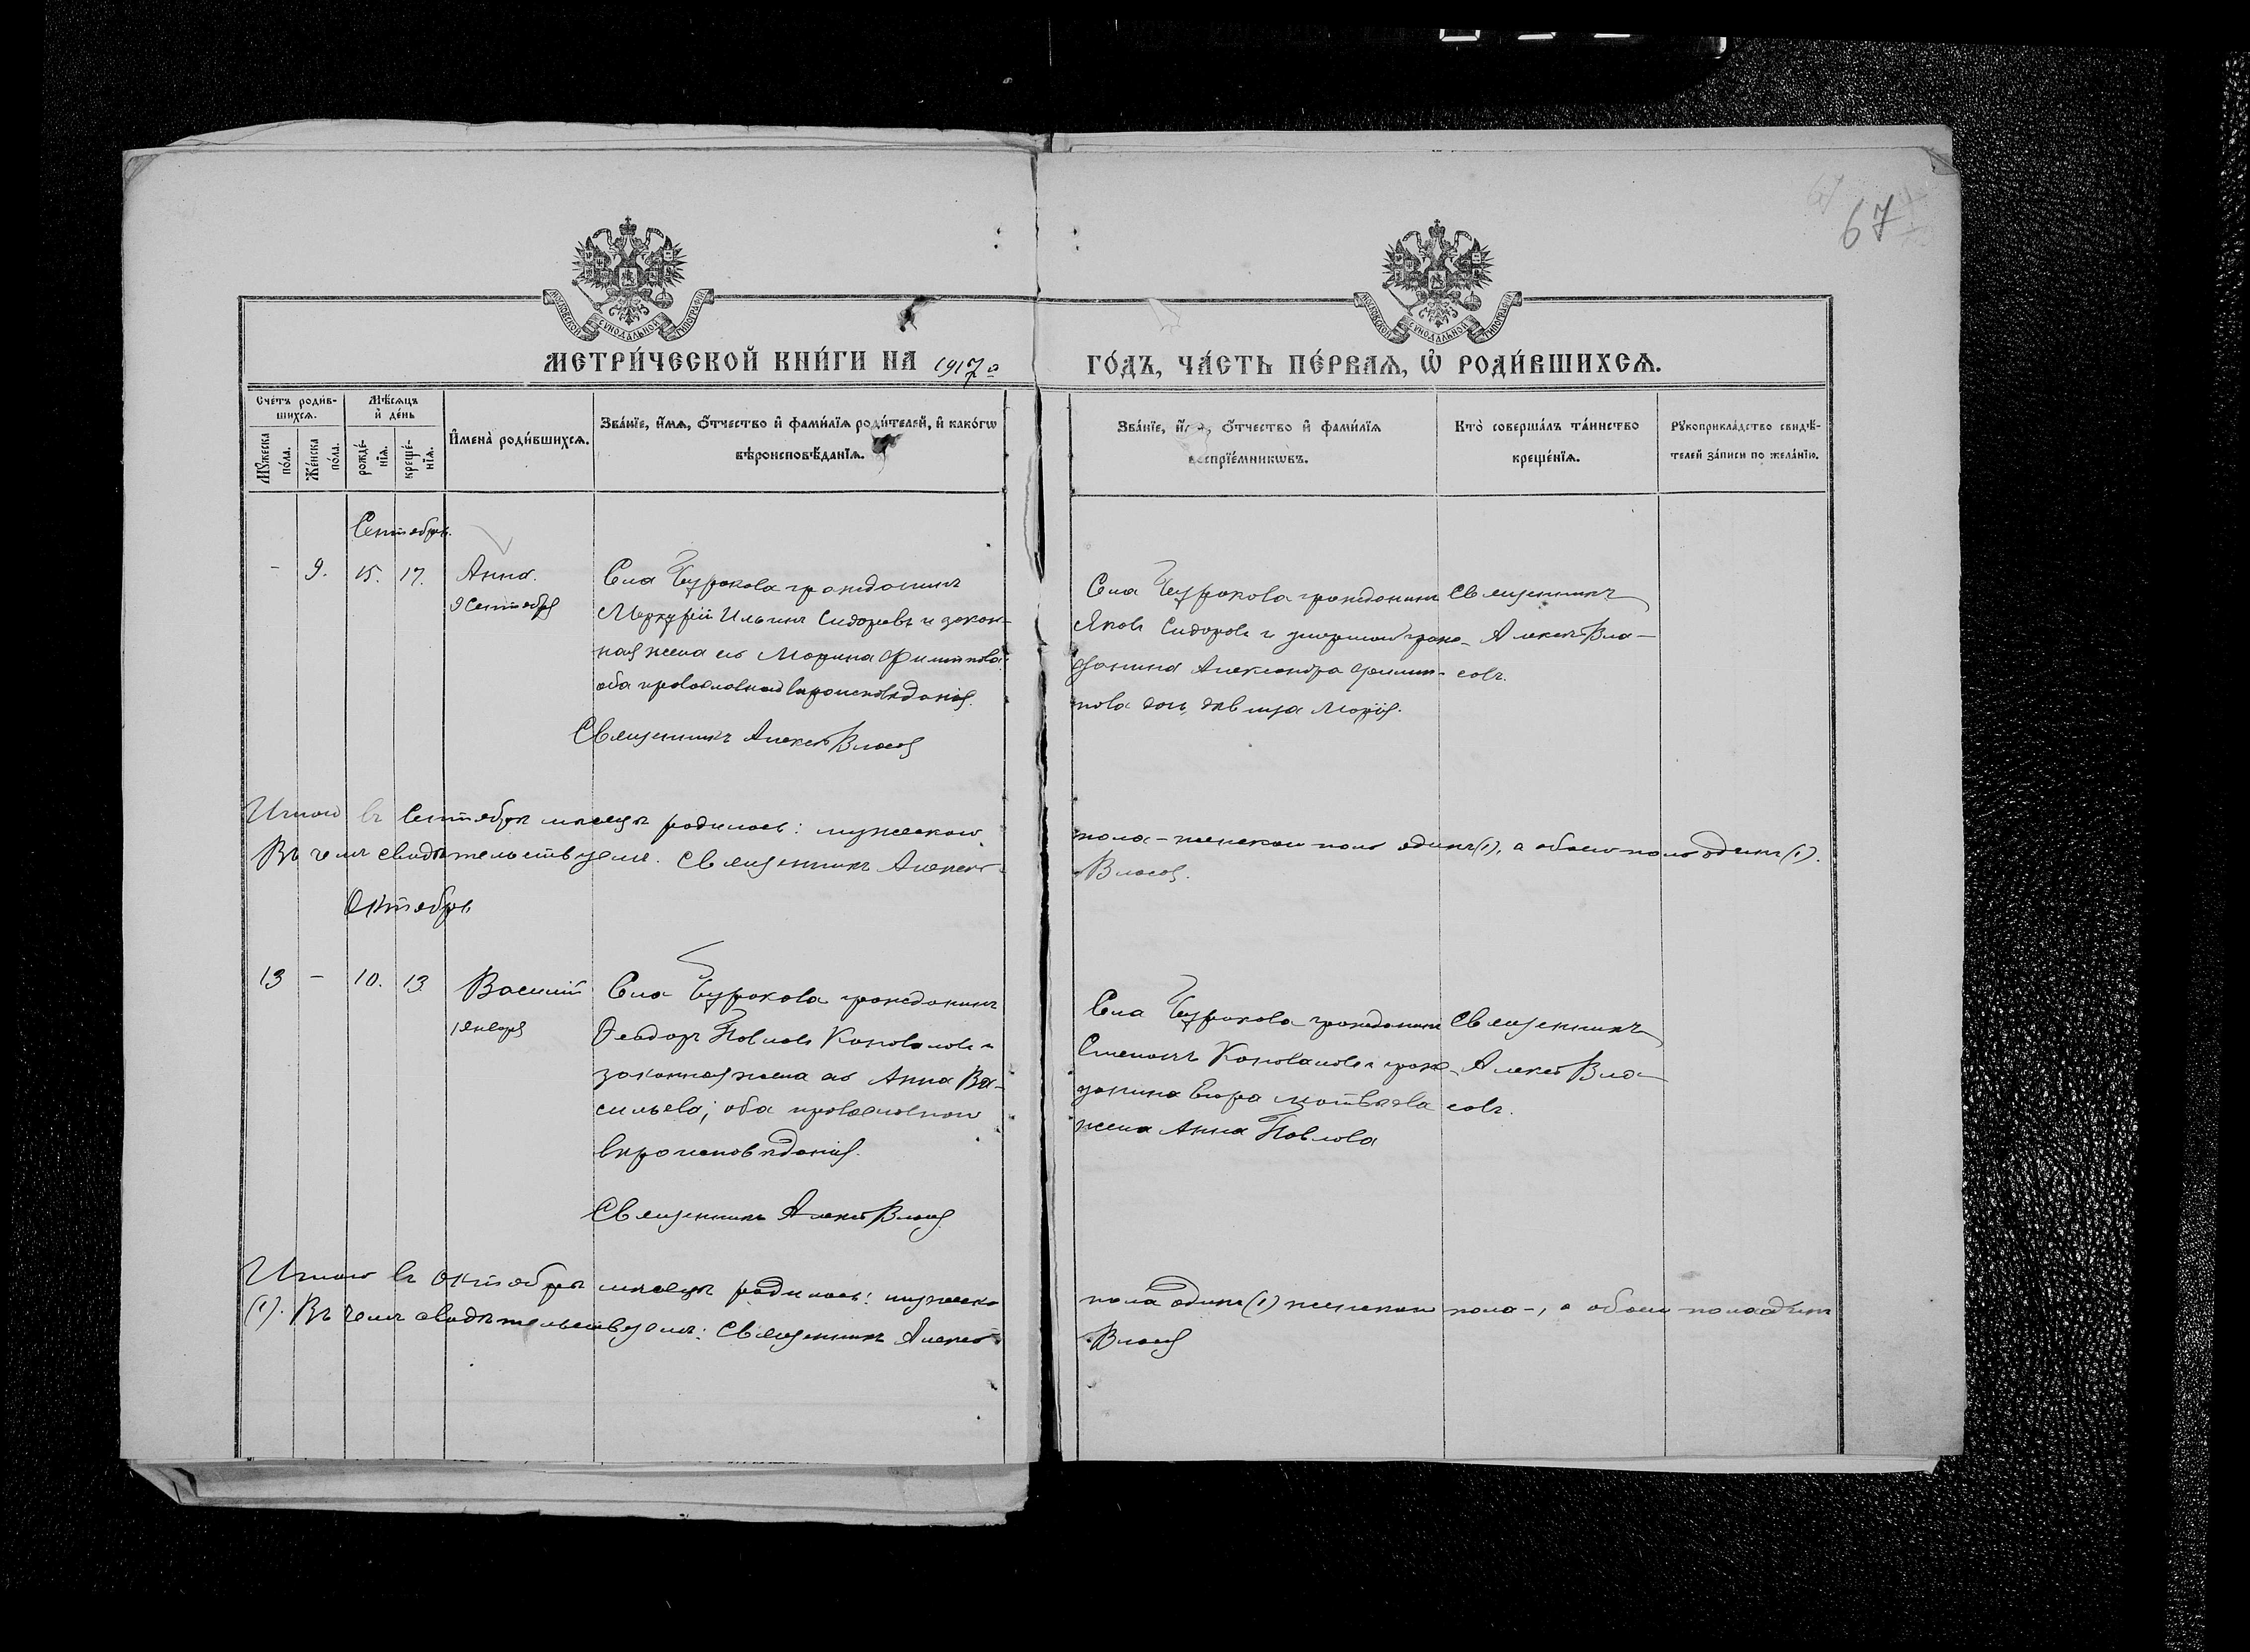 67
МОСКОВСКОЙ СѴНОДАЛЬНОЙ ТИПОГРАФІИ
МОСКОВСКОЙ СѴНОДАЛЬНОЙ ТИПОГРАФІИ
МЕТРИ́ЧЕСКОЙ КНИ́ГИ НА 1917 г
ГО́ДЪ, ЧА́СТЬ ПЕ́РВАѦ, Ѡ РОДИ́ВШИХСѦ.
Сче́тъ роди́в-
шихсѧ.
Мꙋ́жеска
по́ла.
Же́нска
по́ла.
Мѣ́сѧцъ
и҆ де́нь
рожде́-
нїѧ.
креще́-
нїѧ.
И҆мена̀ роди́вшихсѧ.
Зва́нїе, и҆́мѧ, ѻ҆́тчество и҆ фами́лїѧ роди́телей, и҆ како́гѡ
вѣроисповѣ́данїѧ.
Зва́нїе, ѻ҆́тчество и҆ фами́лїѧ
воспрїе́мникѡвъ.
Кто̀ соверша́лъ та́инство
креще́нїѧ.
Рꙋкоприкла́дство свидѣ́-
телей за́писи по жела́нїю.
Сентябрь.
- 9. 15. 17. Анна.
9 Сентября
Села Чуракова гражданинъ
Меркурій Ильинъ Сидоровъ и закон-
ная жена его Марина Филиппова
оба православнаго вѣроисповѣданія.
Священникъ Алексѣй Власовъ
Села Чуракова гражданинъ
Яковъ Сидоровъ и умершаго граж-
данина Александра Филип-
пова дочь, дѣвица Марія.
Священникъ
Алексѣй Вла-
совъ.
Итого въ Сентябрѣ мѣсяцѣ родилось: мужескаго
пола - женскаго пола одинъ (1), а обоего пола одинъ (1).
Въ чемъ свидѣтельствуемъ. Священникъ Алексѣй
Власовъ.
Октябрь
13 - 10. 13. Василій
1 января
Села Чуракова гражданинъ
Ѳеодоръ Павловъ Коноваловъ и
законная жена его Анна Ва-
сильева; оба православнаго
вѣроисповѣданія.
Священникъ Алексѣй Власовъ
Села Чуракова гражданинъ
Степанъ Коноваловъ и граж-
данина Матвѣева
жена Анна Павлова
Священникъ
Алексѣй Вла-
совъ.
Итого въ Октябрѣ мѣсяцѣ родилось: мужеска
пола одинъ (1) женскаго пола -, а обоего пола одинъ
(1). Въ чемъ свидѣтельствуемъ: Священникъ Алексѣй
Власовъ